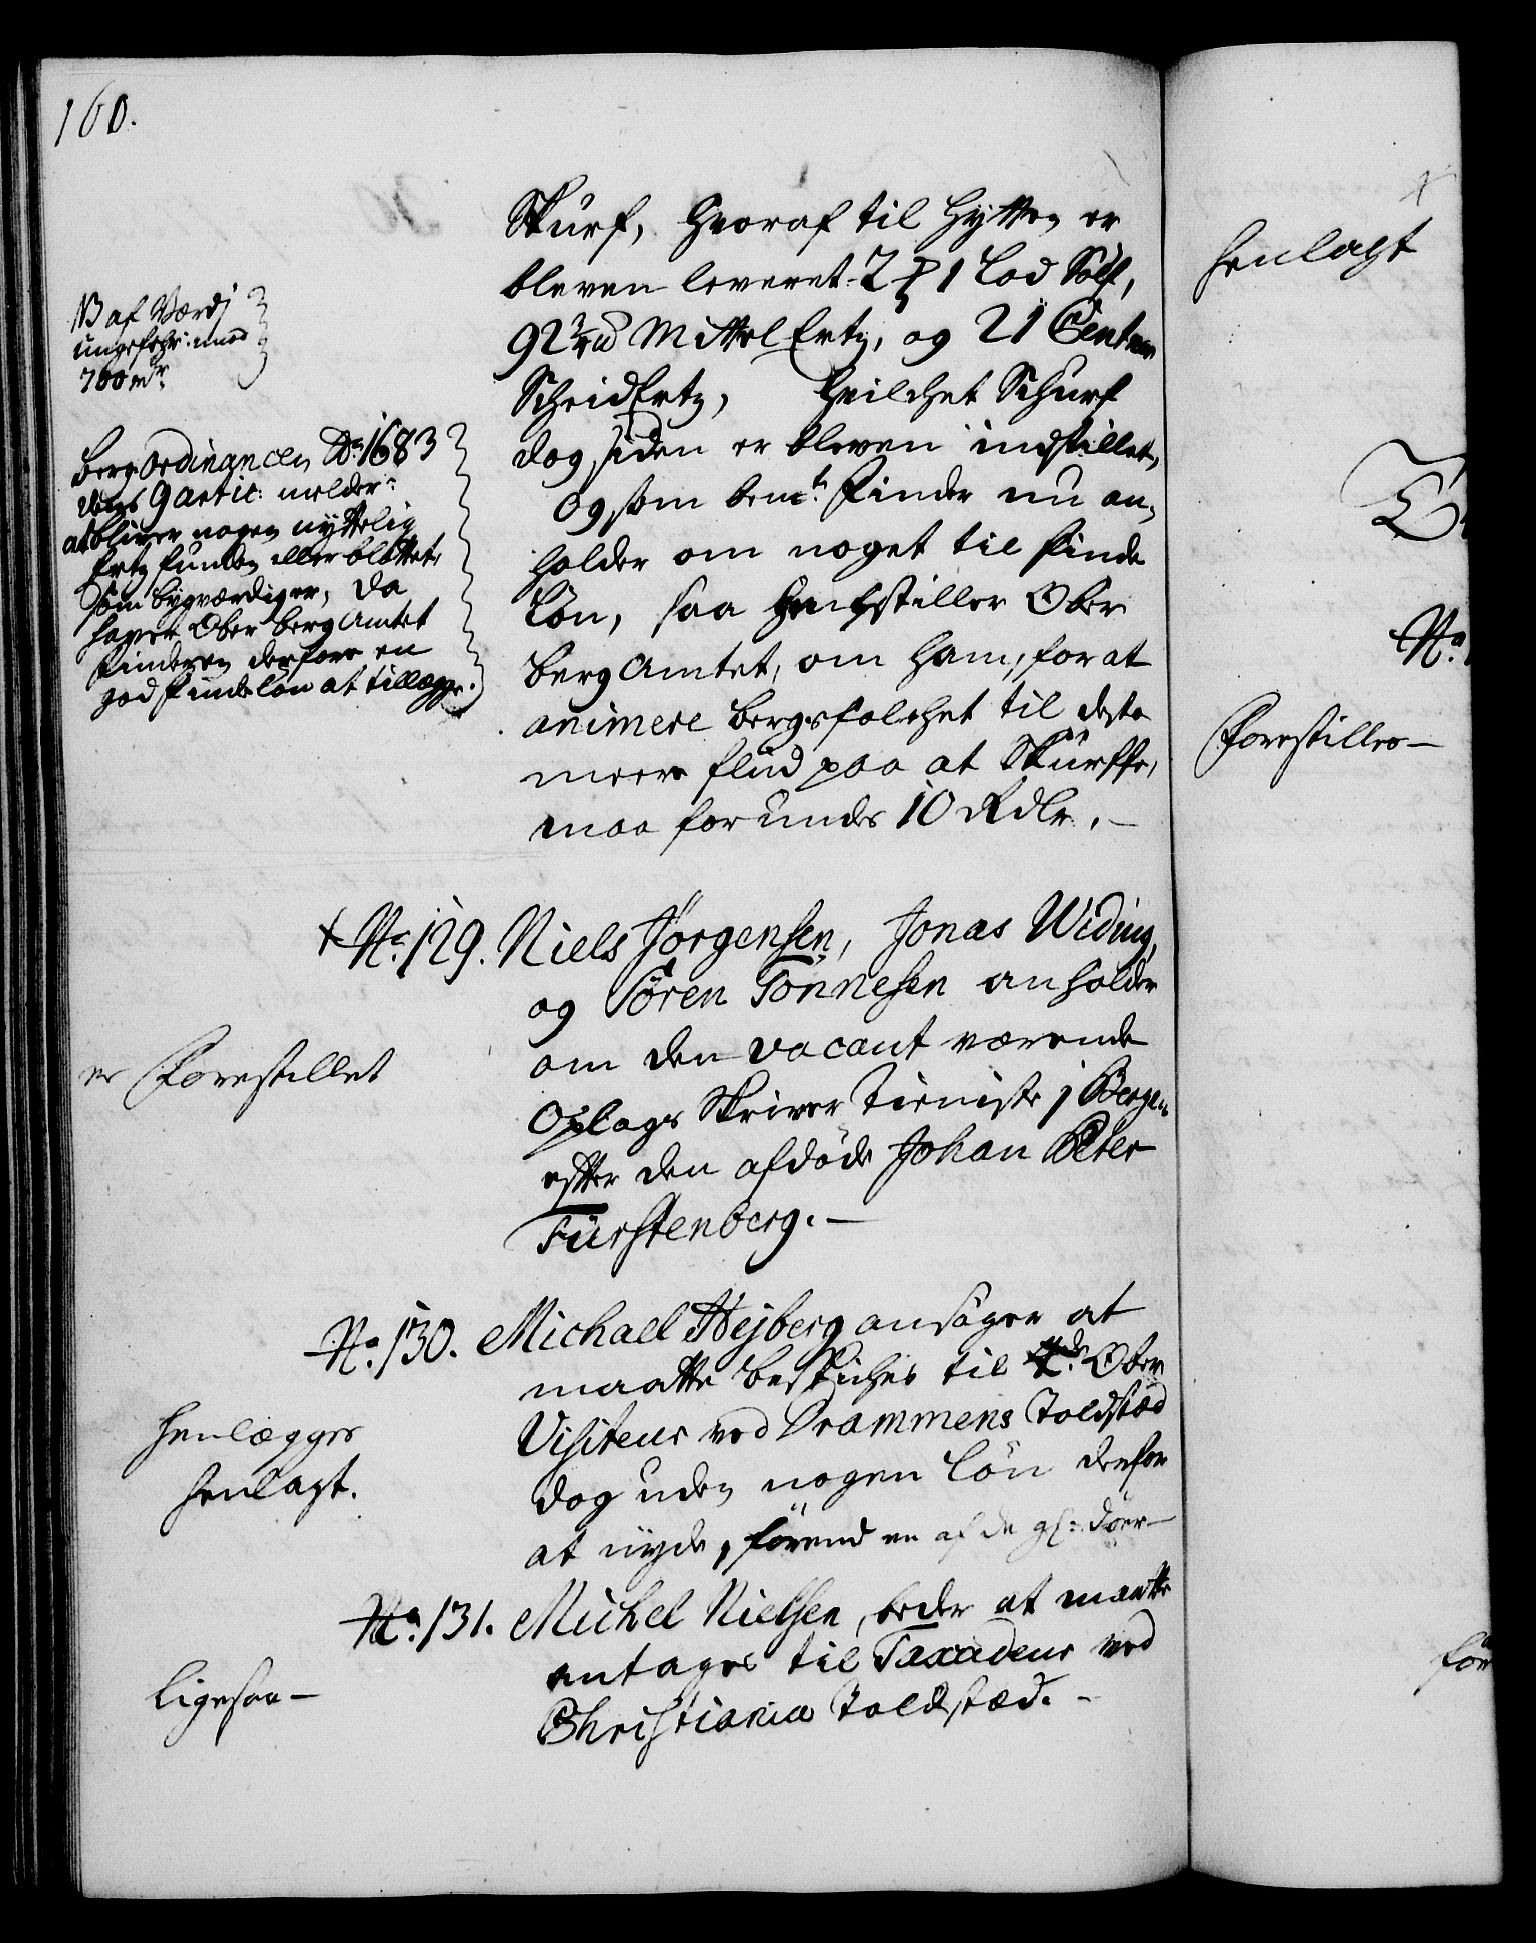 160.
Skurf, hvoraf til Hytten er
bleven leveret 2 ℔ 1 Lod Sölf,
92 Mittel Ertz, og 21 Centner
ScheidErtz, hvilchet Schurf
dog siden er bleven indstillet,
Og som bemte. Finder nu an-
holder om noget til Finde
Lön, saa henstiller Ober
Berg Amtet, om ham, for at
animere Bergsfolchet til desto
meere fliid paa at Skürffe,
maa forundes 10 Rdlr. —
NB af Værdj
ungefehr imod
700 mr
Berg Ordinancen Ao 1683
dens 9 Artic: melder:
at bliver nogen nyttelig
Ertz funden eller blöttet,
som bygværdig er, da
haver Ober Berg Amtet
Finderen derfore en
god Findelön at tillegge.
+ No. 129. Niels Jörgensen, Jonas Widing,
og Sören Tönnesen anholder
om den vacant værende
Oplags Skriver Tieniste j Bergen
efter den afdöde Johan Peter
Fürstenberg. —
er Forestillet
No. 130. Michael Hejberg ansöger at
maatte beskiches til Ober
Visiteur ved Drammens Toldsted
dog uden nogen Lön derfor
at nyde, förend en af de gl: döer —
Henlægges
henlagt.
No. 131. Michel Nielsen, beder at maatte
antages til Taxadeur ved
Christiania Toldsted. —
Ligesaa —
henlagt
No.
Forestilles —
för